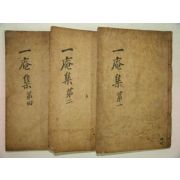 一庵集 第一
一庵集 第二
一庵集 第四